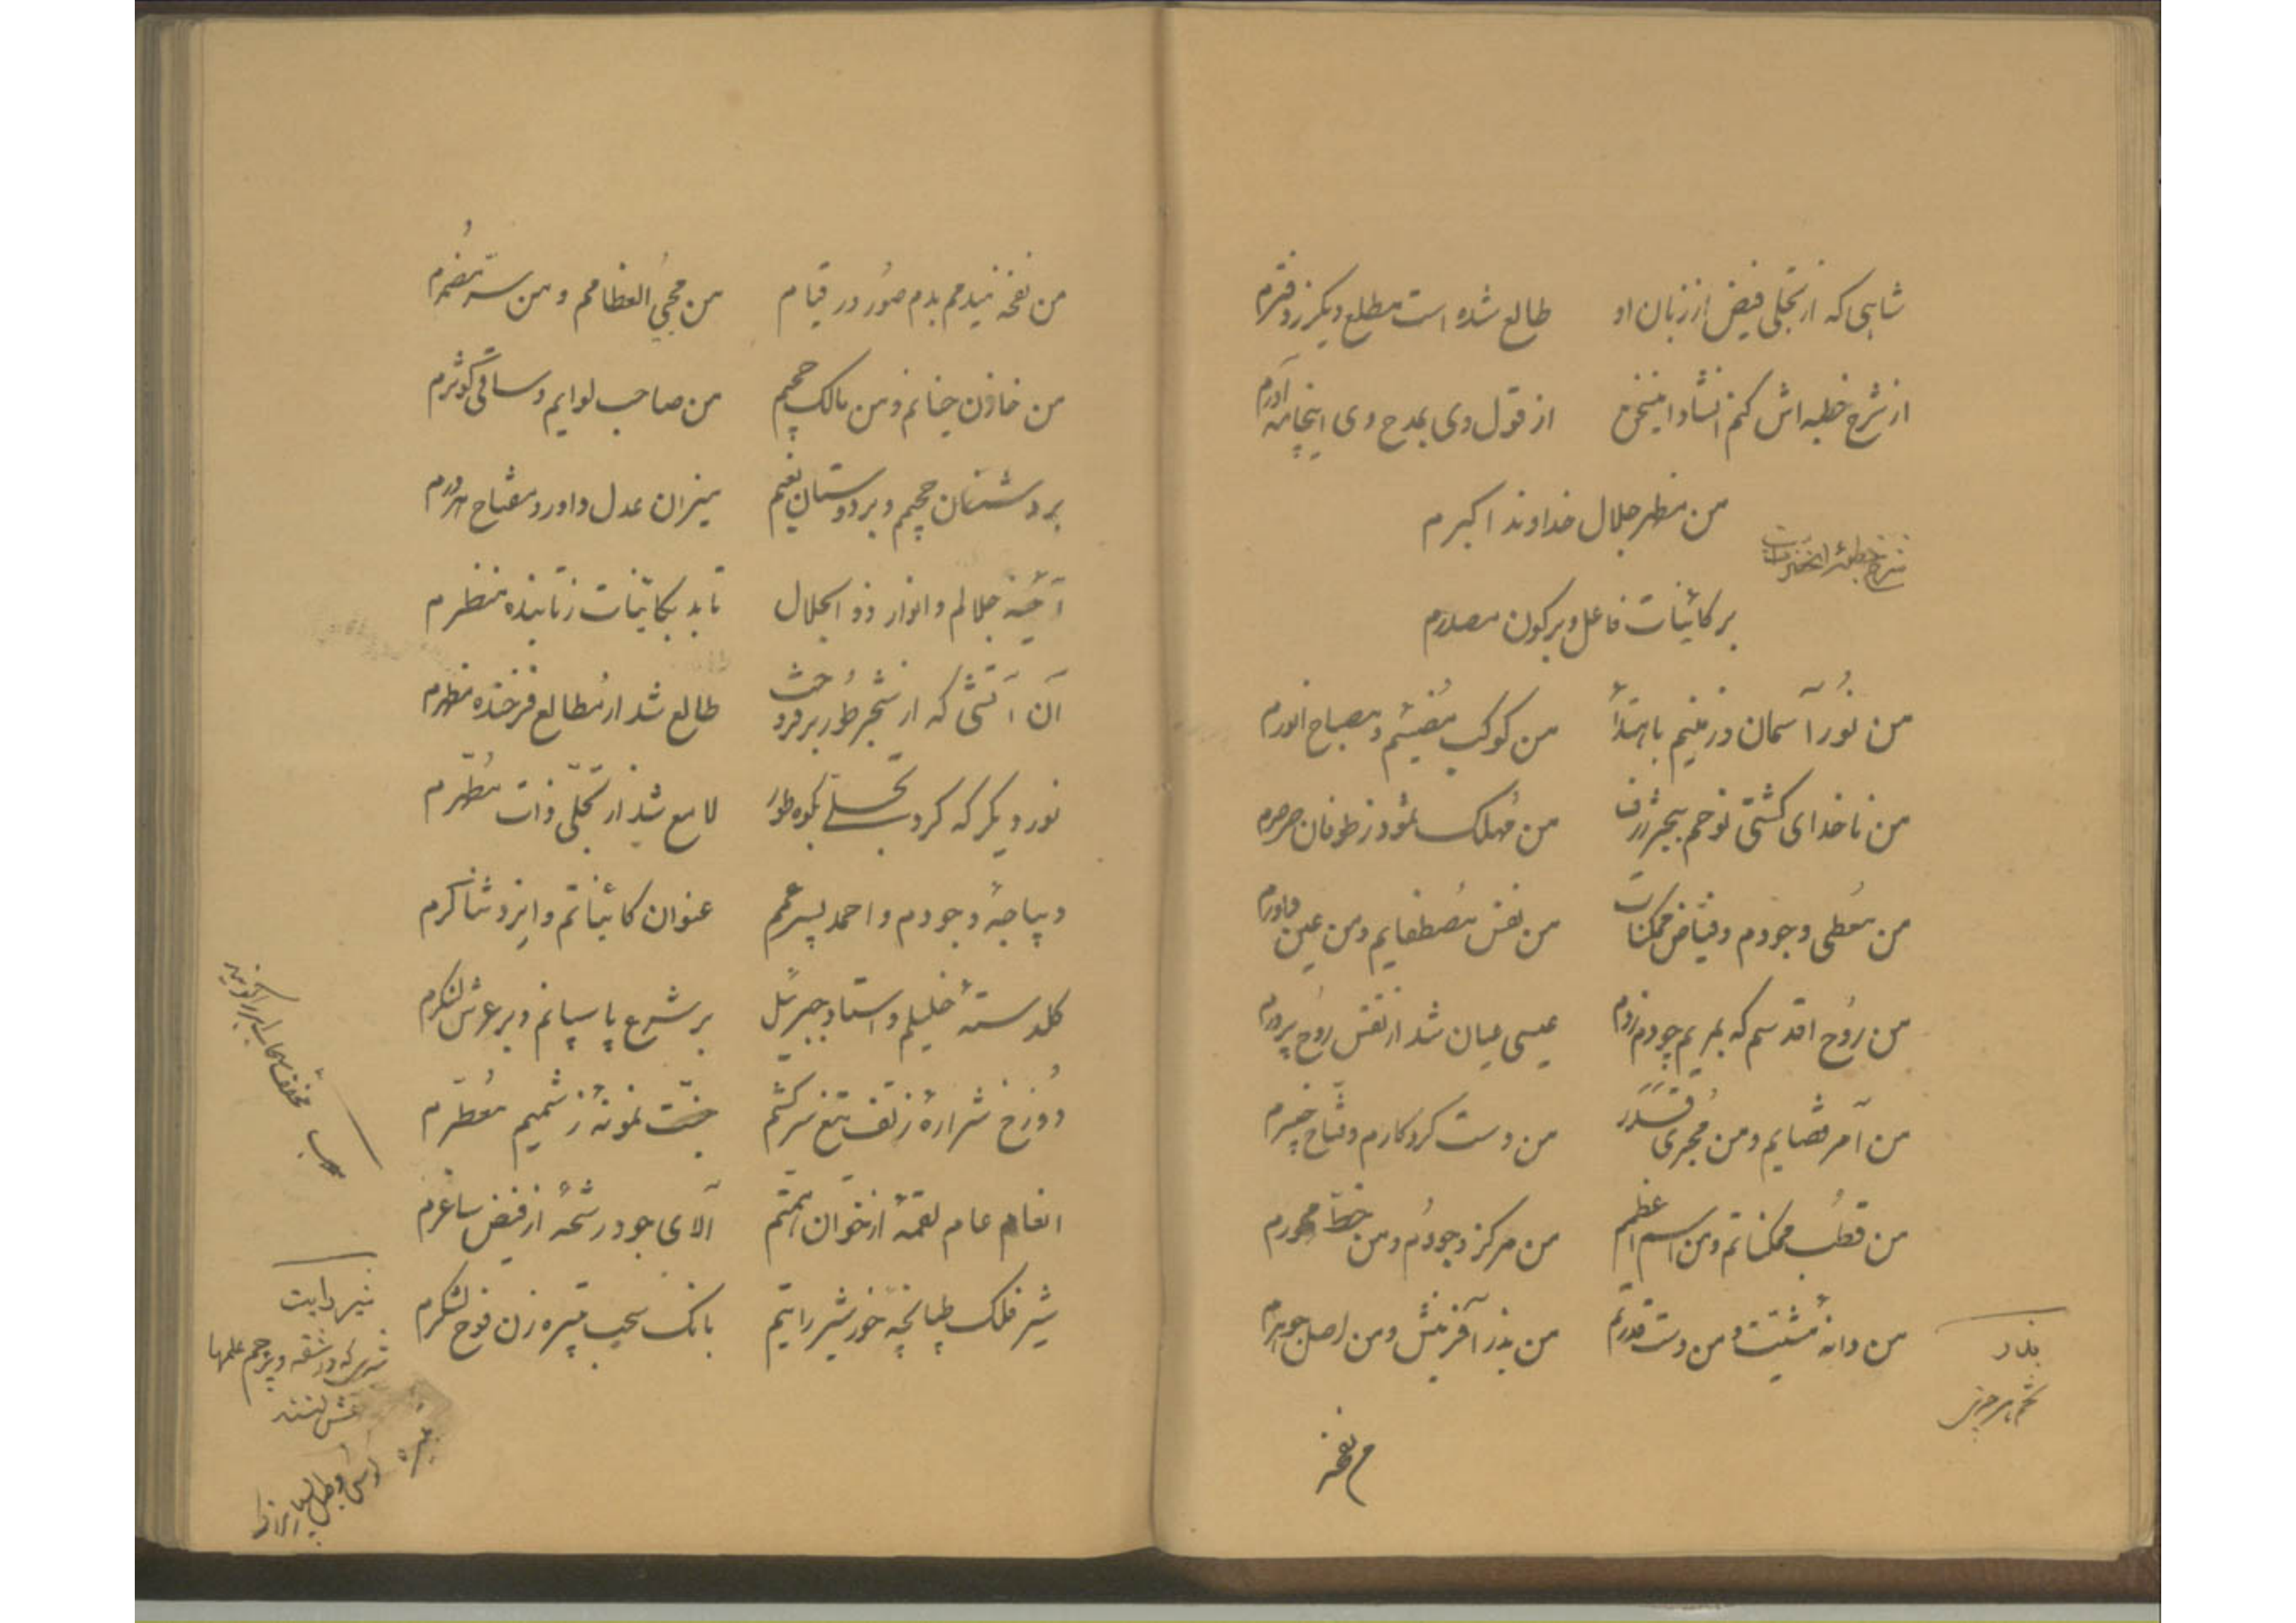 شاهی که از تجلی فیض از زبان او    طالع شده است مطلع دیگر ز دفترم
از شرح خطبه اش کنم انشاد این سخن    از قول وی بمدح وی اینجا آورم
من مظهر جلال خداوند اکبرم
شرح خطبهٔ
بر کائینات فاعل و بر کون مصدرم
من نُور آسمان و زمینم بابتدأ    من کوکب مُضیئم و مصباح انورم
من ناخدای کشتی نوحم ببحر ژرف    من مُهلک ثمود ز طوفان صرصرم
من مُعطی وجودم و فیّاض ممکنات    من نفس مُصطفایم و من عین
من رُوح اقدسم که بمریم چو دم زدم    عیسی عیان شد از نفس رُوح پرورم
من آمر قضایم و من مُجری قَدَر    من دست کردکارم و فتّاح خیبرم
من قطُب ممکناتم و من اسم اعظم    من مرکز وجودُم و من خطّ محورم
من دانهٔ مشیّت و من دست قدرتم    من بذر آفرینش و من اصل جوهرم
بذر
تخم هر چیز
من نفخه
من نفخه میدمم بدم صُور در قیام    من محییُ العظامم و من سرّ مُضمرم
من خازن جنانم و من مالک جحیم    من صاحب لوایم و ساقی کوثرم
بر دشمنان جحیم و بر دوستان نعیم    میزان عدل داور و مفتاح هر درم
آئینهٔ جلالم و انوار ذو الجلال    تابد بکائینات ز تابنده منظرم
آن آتشی که از شجر طُور بر فروخت    طالع شد از مُطالع فرخنده مظهرم
نور دیگر که کرد تجلی بکوه طور    لامع شد از تجلّی ذات مُطهّرم
دیباچهٔ وجودم و احمد پسر عمم    عنوان کائیناتم و ایزد ثناکرم
کلدستهٔ خلیلم و استاد جبرئیل    بر شرع پاسپانم و بر عرش لنکرم
دُوزخ شرارهٔ ز تف تیغ سرکشم    جنّت نمونهٔ ز شمیم مُعطّرم
انعام عام لقمهٔ از خوان همّتم    آلای جود رشحهٔ از فیض ساغرم
شیر فلک طپانچه خور شیر رایتم    بانک سحیب تیره زن فوج لشکرم
مخفف سحاب ابر را کویند
شیر رایت
شیری که در شقه و پرچم علمها
نقش کنند
تیره